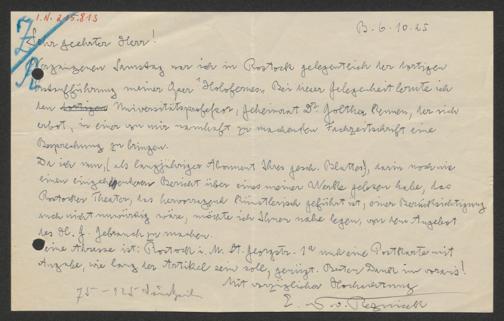 I.N. 215.813
B. 6.10.25
Sehr geehrter Herr!
Vergangenen Samstag war ich in Rostock gelegentlich der dortigen
Erstaufführung meiner Oper "Holofernes. Bei dieser Gelegenheit lernte ich
den Universitätsprofessor, Geheimrat Dr. Golther kennen, der sich
erbot, in einer von mir namhaft zu machenden Fachzeitschrift eine
Besprechung zu bringen.
Da ich nun, (als langjähriger Abonnent Ihres gesch. Blattes), darin noch nie
einen eingehenderen Bericht über eines meiner Werke gelesen habe, das
Rostocker Theater, das hervorragend künstlerisch geführt ist, einer Berücksichtigung
auch nicht unwürdig wäre, möchte ich Ihnen nahe legen, von dem Angebot
des H. G. Gebrauch zu machen.
Seine Adresse ist: Rostock i. M. St. Georgstr. 1a und eine Postkarte mit
Angabe, wie lang der Artikel sein soll, genügt. Besten Dank im voraus!
Mit vorzüglicher Hochachtung
75 – 125 Druckzeilen
E. N. v. Reznicek